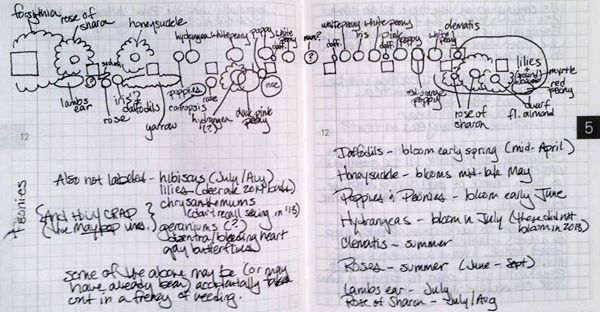 forsythia
rose of
sharon
honeysuckle
hydrangea
white peony
poppy
white
peony
daff.
sedum
?
poppies
rose
rose
lambs
ear
rose
iris?
daffodils
yarrow
coreopsis
hydrangea
(?)
dark pink
peony
12
Peonies
Also not labeled - hibiscus (July/Aug)
lilies
chrysanthemums
(don't recall seeing in '13)
{And Holy CRAP
(the maypop vines.)}
geraniums (?)
dicentra/bleeding heart
gay butterflies
some of the above may be (or may
have already been) accidentally taken
out in a frenzy of weeding.
mum?
?
white peony
daff.
iris
white peony
pink
daff.
poppy
white
peony
clematis
lilies
(ground
myrtle
red
peony
dwarf
fl. almond
rose of
sharon
orange
poppy
12
5
Daffodils - bloom early spring (mid-April)
Honeysuckle - blooms mid-late May
Poppies & Peonies - bloom early June
Hydrangeas - bloom in July (these did not
bloom in 2013)
Clematis - summer
Roses - summer (June - Sept)
Lambs ear - July
Rose of Sharon - July/Aug